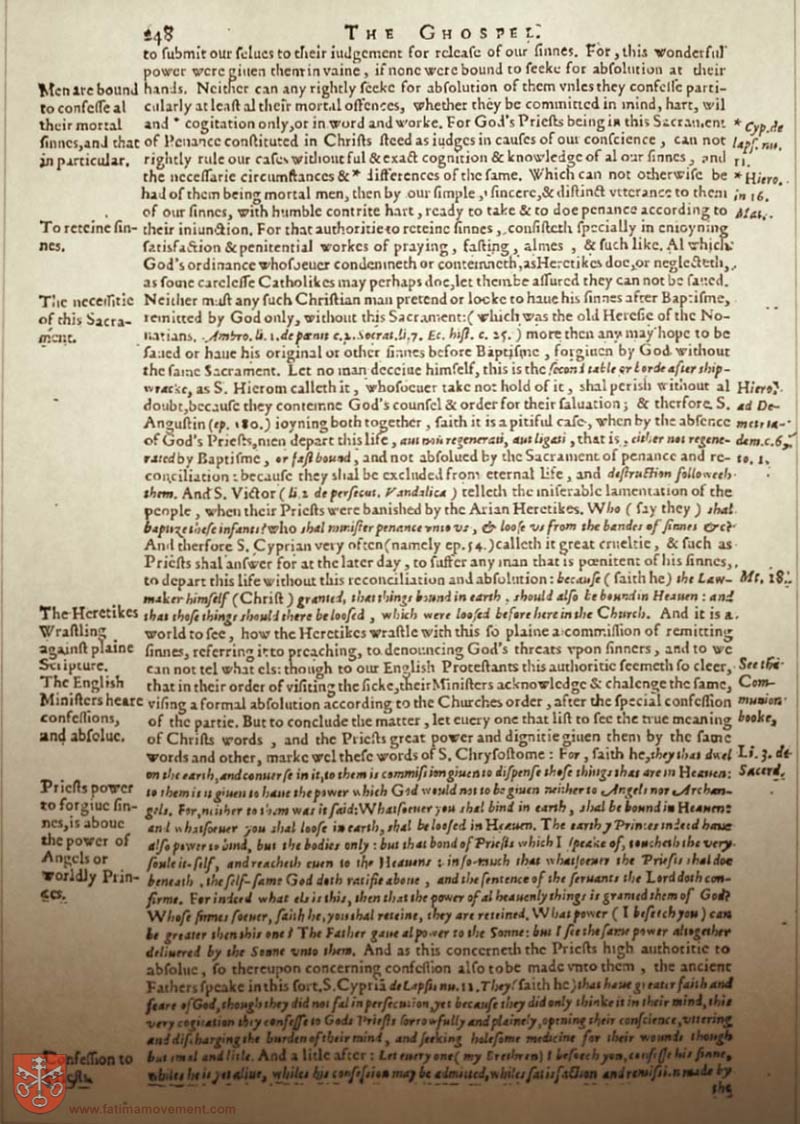 248
THE GHOSPEL
to submit our selues to their iudgement for release of our sinnes. For, this wonderful
power were giuen them in vaine, if none were bound to seeke for absolution at their
hands. Neither can any rightly seeke for absolution of them vnles they confesse parti-
cularly at least al their mortal offences, whether they be committed in mind, hart, wil
and * cogitation only, or in word and worke. For God's Priests being in this Sacrament
of Penance constituted in Christs steed as iudges in causes of our conscience, can not
rightly rule our cases without ful & exact cognition & knowledge of al our sinnes, and
the necessarie circumstances & * differences of the same. Which can not otherwise be
had of them being mortal men, then by our simple, sincere, & distinct vtterance to them
of our sinnes, with humble contrite hart, ready to take & to doe penance according to
their iniunction. For that authoritie to reteine sinnes, consisteth specially in enioyning
satisfaction & penitential workes of praying, fasting, almes, & such like. Al which
God's ordinance whosoeuer condemneth or contemneth, as Heretikes doe, or neglecteth,
as some carelesse Catholikes may perhaps doe, let them be assured they can not be saued.
Neither must any such Christian man pretend or looke to haue his sinnes after Baptisme,
remitted by God only, without this Sacrament: (which was the old Heresie of the No-
uatians. Ambro. li. 1. de pœnit c. 2. Socrat. li. 7. Ec. hist. c. 25.) more then any may hope to be
saued or haue his original or other sinnes before Baptisme, forgiuen by God without
the same Sacrament. Let no man deceiue himself, this is the second table or borde after ship-
wracke, as S. Hierom calleth it, whosoeuer take not hold of it, shal perish without al
doubt, because they contemne God's counsel & order for their saluation; & therfore S.
Augustin (ep. 180.) ioyning both together, saith it is a pitiful case, when by the absence
of God's Priests, men depart this life, aut non regenerati, aut ligati, that is, either not regene-
rated by Baptisme, or fast bound, and not absolued by the Sacrament of penance and re-
conciliation: because they shal be excluded from eternal life, and destruction followeth
them. And S. Victor (li. 2 de persecut. Vandalica) telleth the miserable lamentation of the
people, when their Priests were banished by the Arian Heretikes. Who (say they) shal
baptize these infants? who shal minister penance vnto vs, & loose vs from the bandes of sinnes &c?
And therfore S. Cyprian very often (namely ep. 54.) calleth it great crueltie, & such as
Priests shal answer for at the later day, to suffer any man that is pœnitent of his sinnes,
to depart this life without this reconciliation and absolution: because (saith he) the Law-
maker himself (Christ) granted, that things bound in earth, should also be bound in Heauen: and
that those things should there be loosed, which were loosed before here in the Church. And it is a
world to see, how the Heretikes wrastle with this so plaine a commission of remitting
sinnes, referring it to preaching, to denouncing God's threats vpon sinners, and to we
can not tel what els: though to our English Protestants this authoritie seemeth so cleer,
that in their order of visiting the sicke, their Ministers acknowledge & chalenge the same,
vsing a formal absolution according to the Churches order, after the special confession
of the partie. But to conclude the matter, let euery one that list to see the true meaning
of Christs words, and the Priests great power and dignitie giuen them by the same
words and other, marke wel these words of S. Chrysostome: For, saith he, they that dwel
on the earth, and conuerse in it, to them is commission giuen to dispense those things that are in Heauen:
to them is it giuen to haue the power which God would not to be giuen neither to Angels nor Archan-
gels. For, neither to them was it said: Whatsoeuer you shal bind in earth, shal be bound in Heauen:
and whatsoeuer you shal loose in earth, shal be loosed in Heauen. The earthy Princes indeed haue
also power to bind, but the bodies only: but that bond of Priests which I speake of, toucheth the very
soule it-self, and reacheth euen to the Heauens: in so-much that whatsoeuer the Priests shal doe
beneath, the self-same God doth ratifie aboue, and the sentence of the seruants the Lord doth con-
firme. For indeed what els is this, then that the power of al heauenly things is granted them of God?
Whose sinnes soeuer, saith he, you shal reteine, they are reteined. What power (I beseech you) can
be greater then this one? The Father gaue al power to the Sonne: but I see the same power altogether
deliuered by the Sonne vnto them. And as this concerneth the Priests high authoritie to
absolue, so thereupon concerning confession also to be made vnto them, the ancient
Fathers speake in this sort. S. Cypriā de Lapsis nu. 11. They (saith he) that haue greater faith and
feare of God, though they did not fal in persecution, yet because they did only thinke it in their mind, this
very cogitation they confesse to Gods Priests sorrowfully and plainely, opening their conscience, vttering
and discharging the burden of their mind, and seeking holesome medicine for their wounds though
but smal and litle. And a litle after: Let euery one (my Brethren) I beseech you, confesse his sinne,
whiles he is yet aliue, whiles his confession may be admitted, whiles satisfaction and remission made by
the
Men are bound
to confesse al
their mortal
sinnes, and that
in particular.
To reteine sin-
nes.
The necessitie
of this Sacra-
ment.
The Heretikes
Wrastling
against plaine
Scripture.
The English
Ministers heare
confessions,
and absolue.
Priests power
to forgiue sin-
nes, is aboue
the power of
Angels or
worldly Prin-
ces.
Confession to
* Cyp. de
laps. nu.
11.
* Hiero.
in 16.
Mat.
Hiero.
ad De-
metria-
dem. c. 6,
to. 1.
Mt. 18.
See the
Com-
munion
booke,
Li. 3. de
Sacerd.
www.fatimamovement.com